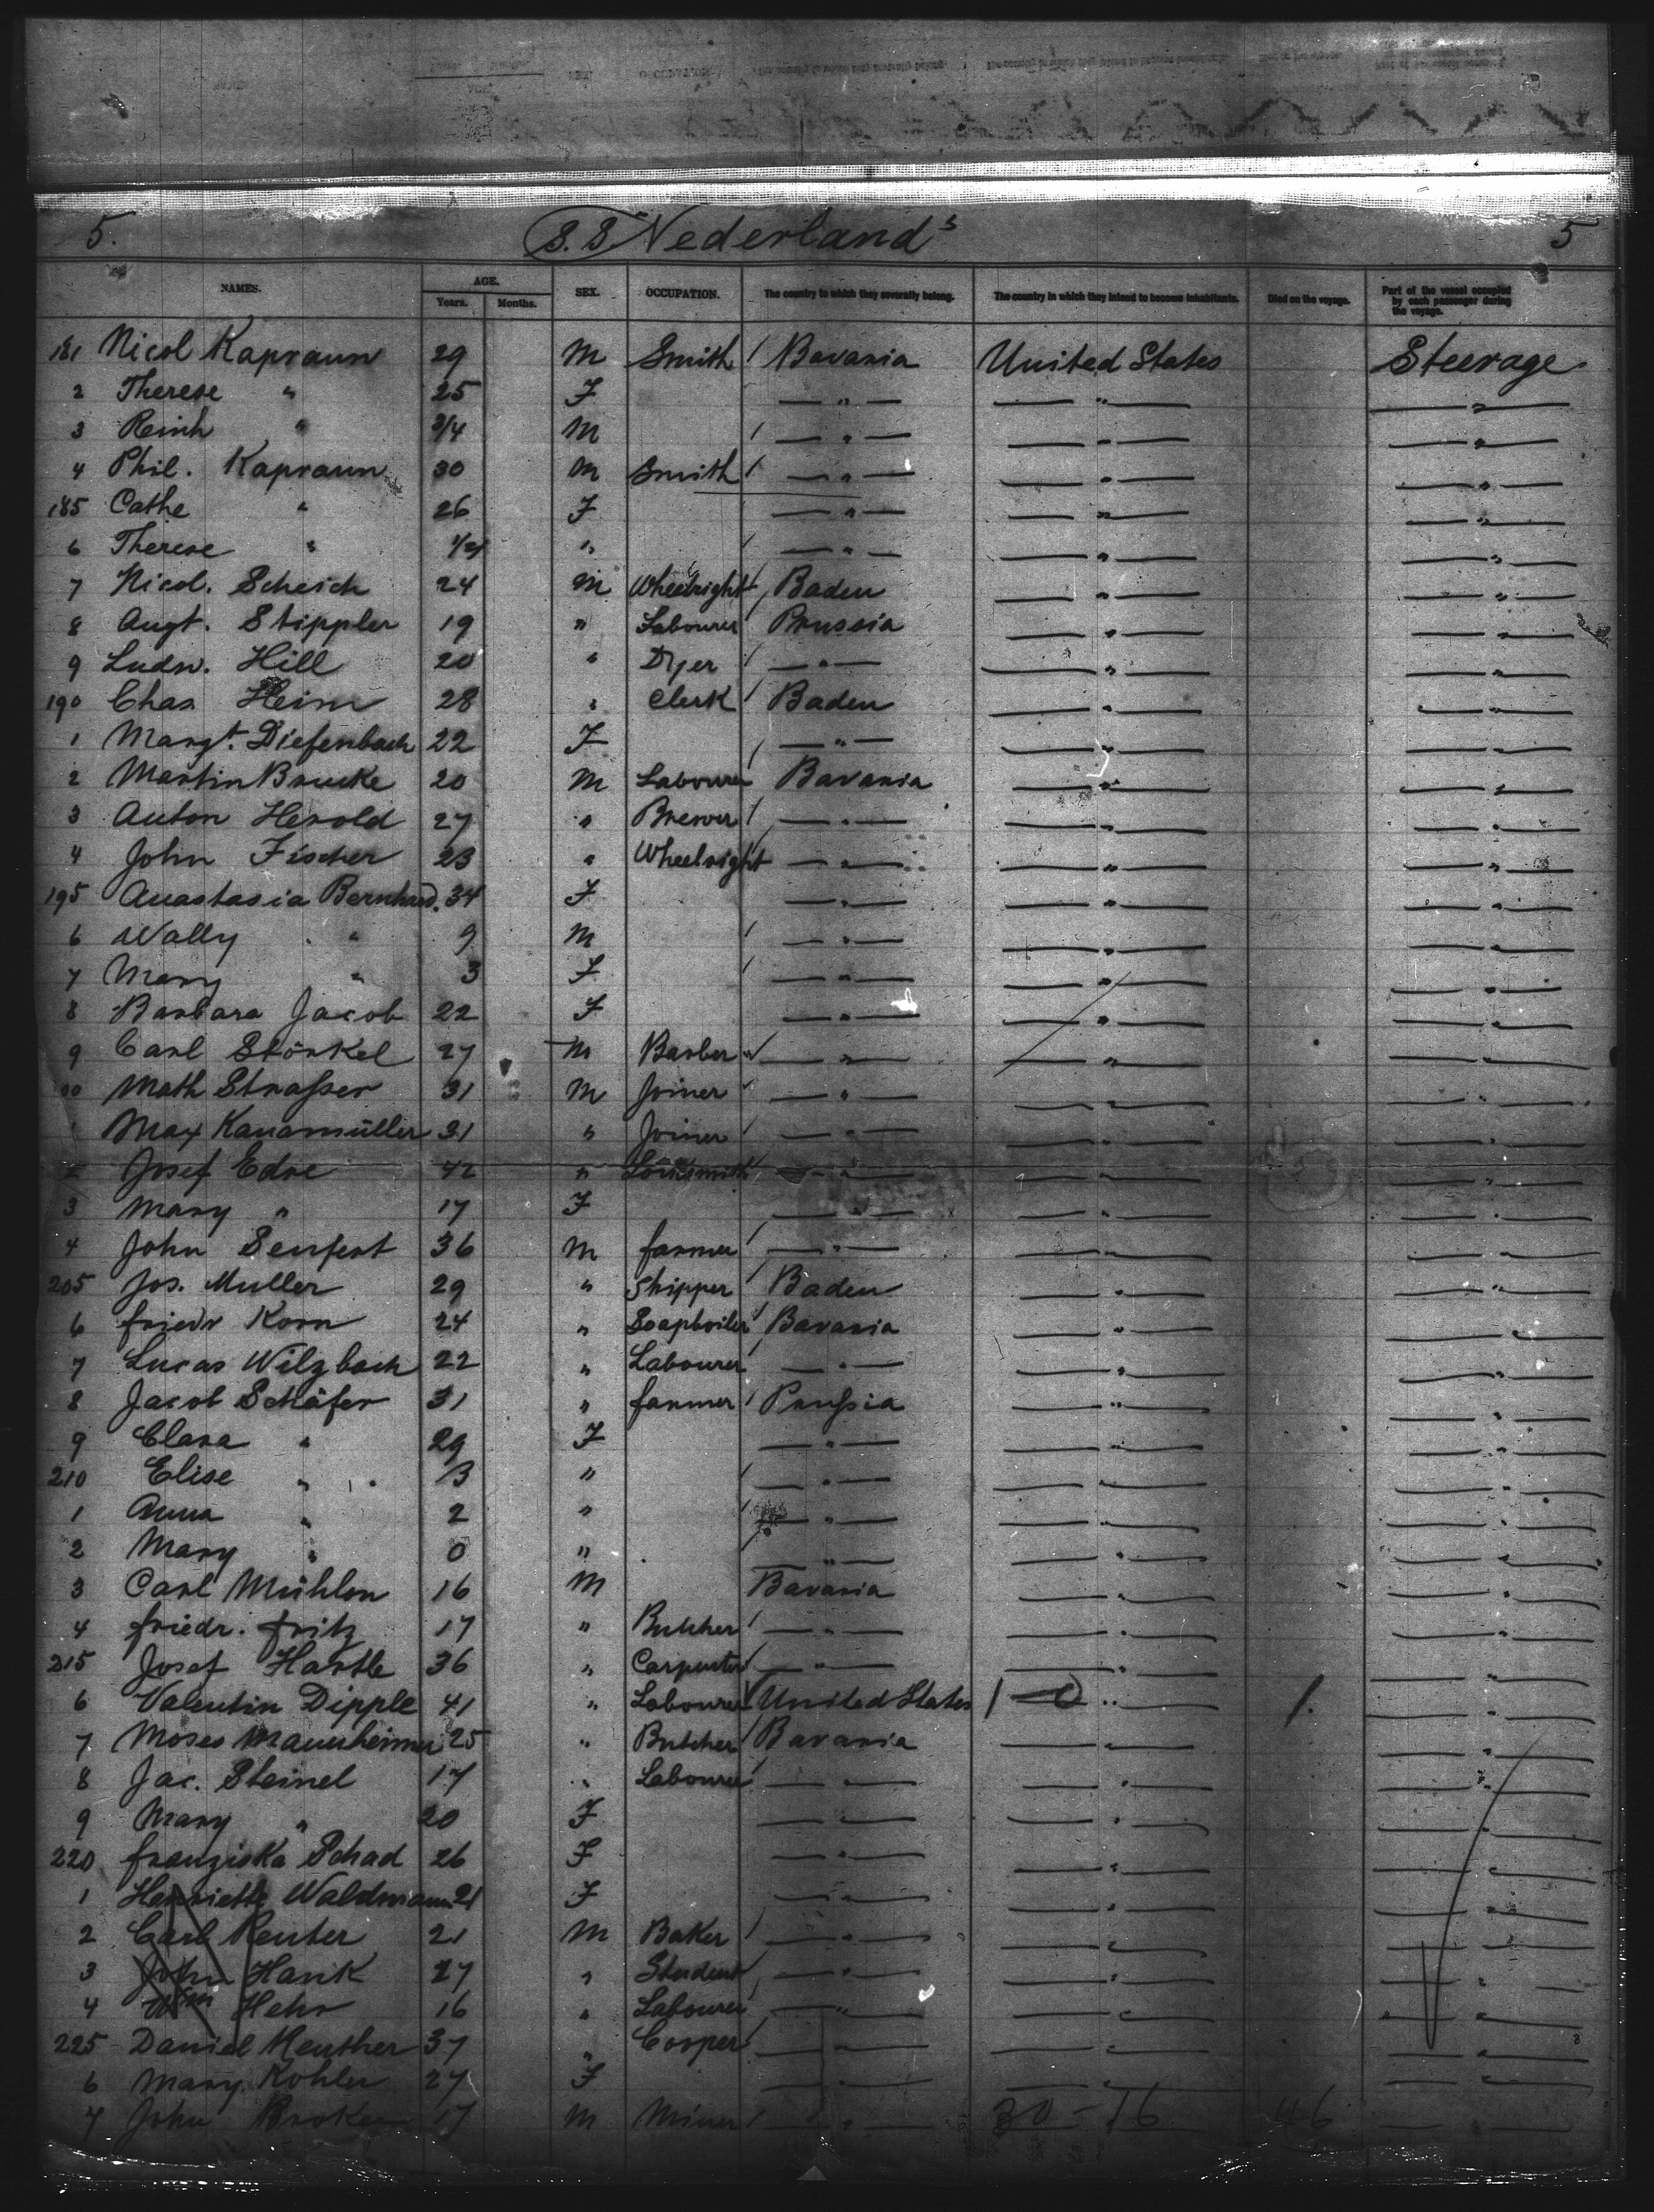 5. S.S Nederland s 5
NAMES. AGE. Years. Months. SEX. OCCUPATION. The country to which they severally belong. The country in which they intend to become inhabitants. Died on the voyage. Part of the vessel occupied by each passenger during the voyage.
181 Nicol Kapraun 29 M Smith / Bavaria United States Steerage
2 Therese " 25 F — " — — " — — " —
3 Reinh " 3/4 M / — " — — " — — " —
4 Phil. Kapraun 30 M Smith / — " — — " — — " —
185 Cathe " 26 F — " — — " — — " —
6 Therese " " / — " — — " — — " —
7 Nicol. Scheich 24 M Wheelright / Baden — " — — " —
8 Augt. Stippler 19 " Labourer Prussia — " — — " —
9 Ludw. Hill 20 " Dyer / — " — — " — — " —
190 Chas Heim 28 " Clerk / Baden — " — — " —
1 Margt. Diefenbach 22 F / — " — — " — — " —
2 Martin Brucke 20 M Labourer Bavaria — " — — " —
3 Anton Herold 27 " Brewer / — " — — " — — " —
4 John Fischer 23 " Wheelright — " — — " — — " —
195 Anastasia Bernhard. 34 F — " — — " — — " —
6 Wally " 9 M / — " — — " — — " —
7 Mary " 3 F / — " — — " — — " —
8 Barbara Jacob 22 F — " — — " — — " —
9 Carl Störkel 27 M Barber — " — — " — — " —
00 Math Straßer 31 M Joiner — " — — " — — " —
Max Kanamüller 31 " Joiner / — " — — " — — " —
2 Josef Edre 42 " — " — — " — — " —
3 Mary " 17 F — " — — " — — " —
4 John Senfert 36 M farmer / — " — — " — — " —
205 Jos. Muller 29 " Shipper / Baden — " — — " —
6 friedr Korn 24 " Soapboiler / Bavaria — " — — " —
7 Lucas Wilzbach 22 " Labourer — " — — " — — " —
8 Jacob Schäfer 31 " farmer / Prußia — " — — " —
9 Clara " 29 F — " — — " — — " —
210 Elise " 3 " / — " — — " — — " —
1 Anna " 2 " / — " — — " — — " —
2 Mary " 0 " — " — — " — — " —
3 Carl Mühlon 16 M Bavaria — " — — " —
4 friedr. fritz 17 " Butcher / — " — — " — — " —
215 Josef Hartle 36 " Carpenter — " — — " — — " —
6 Valentin Dipple 41 " Labourer United States 1 — " — 1. — " —
7 Moses Mannheimer 25 " Butcher / Bavaria — " — — " —
8 Jac. Steinel 17 " Labourer — " — — " — — " —
9 Mary " 20 F — " — — " — — " —
220 franziska Schad 26 F — " — — " — — " —
1 Henriette Waldmann 21 F — " — — " — — " —
2 Carl Reuter 21 M Baker / — " — — " — — " —
3 John Hank 27 " Student — " — — " — — " —
4 Wm Hehr 16 " Labourer — " — — " — — " —
225 Daniel Reuther 37 " Cooper — " — — " — — " —
6 Mary Kohler 27 F — " — — " — — " —
7 John Broker 17 M Miner / — " — 30 - 16 46 — " —